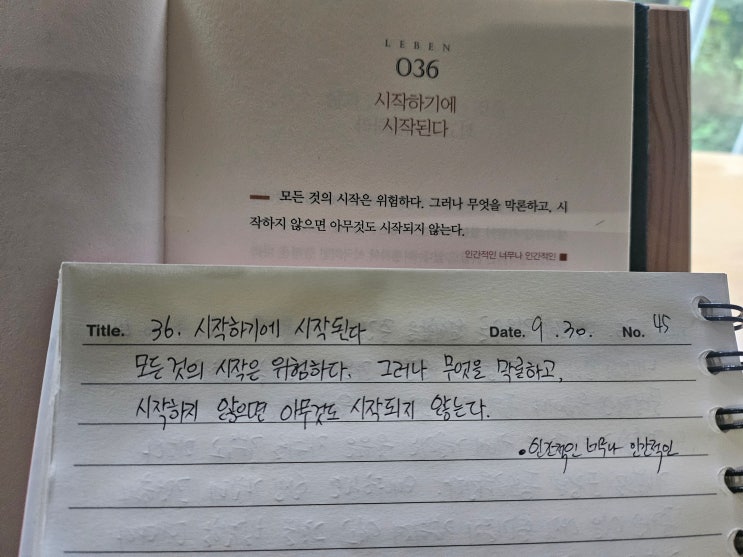 LEBEN
036
시작하기에
시작된다
모든 것의 시작은 위험하다. 그러나 무엇을 막론하고, 시
작하지 않으면 아무것도 시작되지 않는다.
인간적인 너무나 인간적인
Title. 36. 시작하기에 시작된다 Date. 9.30. No. 45
모든 것의 시작은 위험하다. 그러나 무엇을 막론하고,
시작하지 않으면 아무것도 시작되지 않는다.
• 인간적인 너무나 인간적인